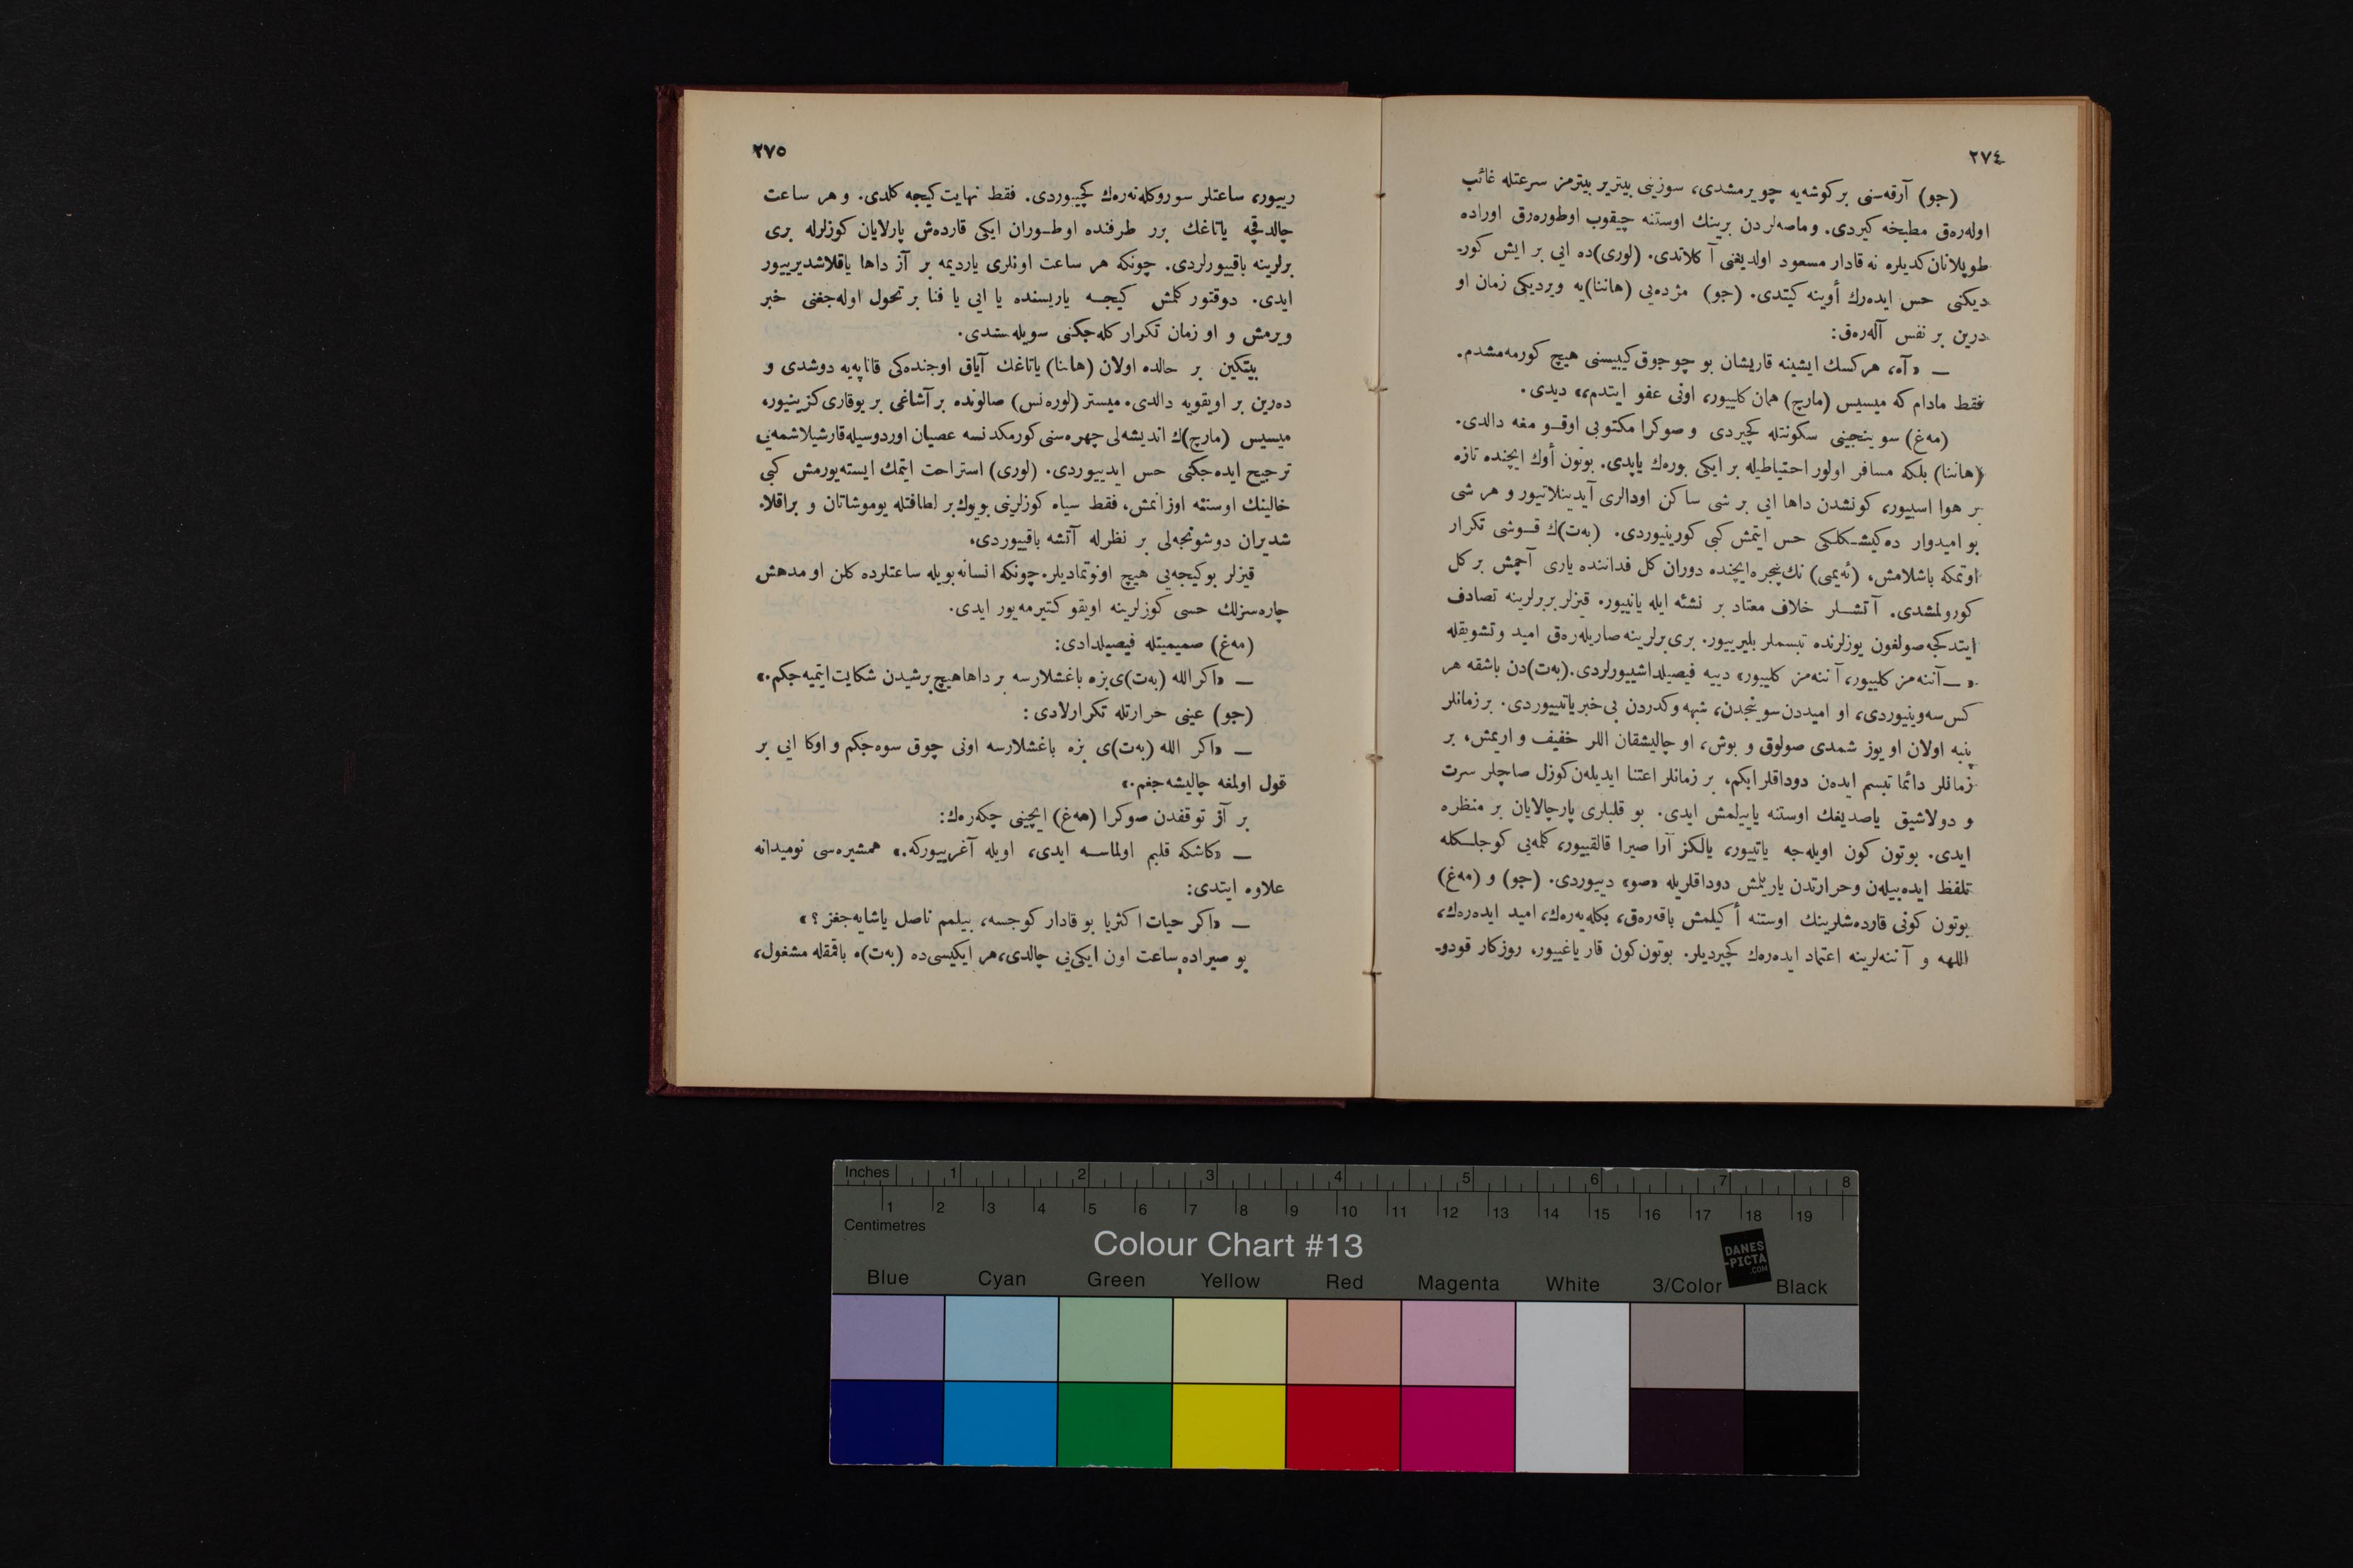 ٢٧٤
(جو) آرقه‌سنى بر كوشه‌يه چويرمشدى، سوزينى بيتيرير بيتيرمز سرعتله غائب
اوله‌رەق مطبخه كيردى. و ماصه‌لردن برينك اوستنه چيقوب اوطوره‌رق اوراده
طوپلانان كديلره نه قادار مسعود اولديغنى آ كلاتدى. (لورى)ده ايى بر ايش كور-
ديكنى حس ايده‌رك أوينه كيتدى. (جو) مژده‌يى (هاننا)يه ويرديكى زمان او
درين بر نفس آله‌رەق:
— «آه، هركسك ايشينه قاريشان بو چوجوق كيبيسنى هيچ كورمه‌مشدم.
فقط مادام كه ميسيس (مارچ) همان كلييور، اونى عفو ايتدم،» ديدى.
(مه‌غ) سوينجينى سكونتله كچيردى و صوكرا مكتوبى اوقو مغه دالدى.
(هاننا) بلكه مسافر اولور احتياطيله بر ايكى بوره‌ك ياپدى. بوتون أوك ايچنده تازه
بر هوا اسييور، كونشدن داها ايى بر شى ساكن اودالرى آيدينلاتيور و هر شى
بو اميدوار ده‌كيشكلكى حس ايتمش كبى كورينيوردى. (به‌ت)ك قوشى تكرار
اوتمكه باشلامش، (ئه‌يمى) نك پنجره ايچنده دوران كل فداننده يارى آچمش بر كل
كورولمشدى. آتشلر خلاف معتاد بر نشئه ايله يانييور. قيزلر بربرلرينه تصادف
ايتدكجه صولغون يوزلرنده تبسملر بليرييور. برى برلرينه صاريله‌رەق اميد و تشويقله
«— آننه‌مز كلييور، آننه‌مز كلييور» دييه فيصيلداشييورلردى. (به‌ت)دن باشقه هر
كس سه‌وينيوردى، او اميددن سوينجدن، شبهه و كدردن بى خبر ياتييوردى. بر زمانلر
پنبه اولان او يوز شمدى صولوق و بوش، او چاليشقان اللر خفيف و اريمش، بر
زمانلر دائما تبسم ايده‌ن دوداقلر ابكم، بر زمانلر اعتنا ايديله‌ن كوزل صاچلر سرت
و دولاشيق ياصديغك اوستنه ياييلمش ايدى. بو قلبلرى پارچالايان بر منظره
ايدى. بوتون كون اويله‌جه ياتييور، يالكز آرا صيرا قالقييور، كلمه‌يى كوجلكله
تلفظ ايده‌بيله‌ن و حرارتدن ياريلمش دوداقلريله «صو» دييوردى. (جو) و (مه‌غ)
بوتون كونى قارده‌شلرينك اوستنه أ كيلمش باقه‌رەق، بكله‌يه‌رەك، اميد ايده‌رەك،
اللهه و آننه‌لرينه اعتماد ايده‌رەك كچيرديلر. بوتون كون قار ياغييور، روزكار قودو-
٢٧٥
رييور، ساعتلر سوروكله‌نه‌رەك كچييوردى. فقط نهايت كيجه كلدى. و هر ساعت
چالدقجه ياتاغك برر طرفنده اوطوران ايكى قارده‌ش پارلايان كوزلرله برى
برلرينه باقييورلردى. چونكه هر ساعت اونلرى يارديمه بر آز داها ياقلاشديرييور
ايدى. دوقتور كلمش كيجه ياريسنده يا ايى يا فنا بر تحول اوله‌جغنى خبر
ويرمش و او زمان تكرار كله‌جكنى سويله‌مشدى.
بيتكين بر حالده اولان (هاننا) ياتاغك آياق اوجنده‌كى قاناپه‌يه دوشدى و
ده‌رين بر اويقويه دالدى. ميستر (لوره‌نس) صالونده بر آشاغى بر يوقارى كزينيور،
ميسيس (مارچ)ك انديشه‌لى چهره‌سنى كورمكدنسه عصيان اوردوسيله قارشيلاشمه‌يى
ترجيح ايده‌جكنى حس ايدييوردى. (لورى) استراحت ايتمك ايسته‌يورمش كبى
خالينك اوستنه اوزانمش، فقط سياه كوزلرينى بويوك بر لطافتله يوموشاتان و براقلا-
شديران دوشونجه‌لى بر نظرله آتشه باقييوردى.
قيزلر بو كيجه‌يى هيچ اونوتماديلر. چونكه انسانه بويله ساعتلرده كلن او مدهش
چاره‌سزلك حسى كوزلرينه اويقو كتيرمه‌يور ايدى.
(مه‌غ) صميميتله فيصيلدادى:
— «اكر الله (به‌ت)ى بزه باغشلارسه بر داها هيچ برشيدن شكايت ايتميه‌جكم.»
(جو) عينى حرارتله تكرارلادى:
— «اكر الله (به‌ت)ى بزه باغشلارسه اونى چوق سوه‌جكم و اوكا ايى بر
قول اولمغه چاليشه‌جغم.»
بر آز توقفدن صوكرا (مه‌غ) ايچينى چكه‌رەك:
— «كاشكه قلبم اولماسه ايدى، اويله آغرييوركه.» همشيره‌سى نوميدانه
علاوه ايتدى:
— «اكر حيات اكثريا بو قادار كوجسه، بيلمم ناصل ياشايه‌جغز؟»
بو صيراده ساعت اون ايكى‌يى چالدى، هر ايكيسى‌ده (به‌ت)ه باقمقله مشغول،
Inches 1 2 3 4 5 6 7 8
1 2 3 4 5 6 7 8 9 10 11 12 13 14 15 16 17 18 19
Centimetres
Colour Chart #13
DANES
-PICTA
.COM
Blue Cyan Green Yellow Red Magenta White 3/Color Black